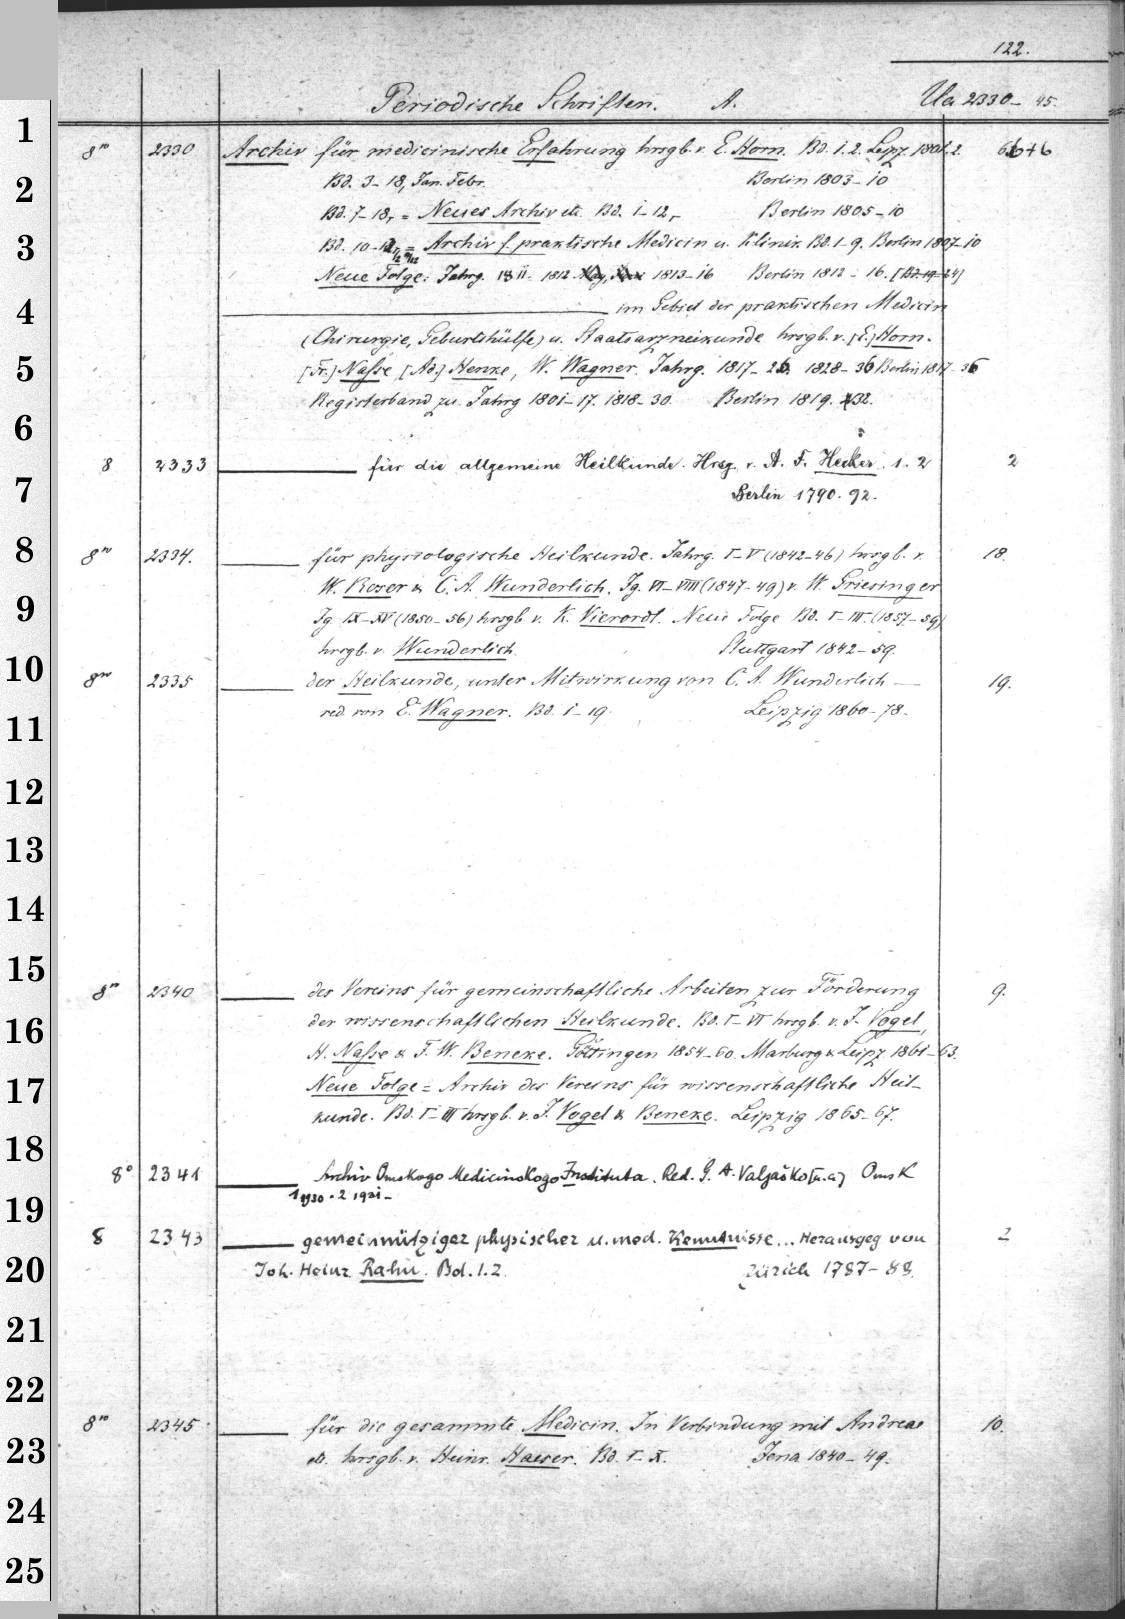 122.
Periodische Schriften. A. Ua 2330-45.
1
8° 2330 Archiv für medicinische Erfahrung hrsgb. v. E. Horn. Bd. 1. 2. Leipz. 1801. 2.
2
Bd. 3-18, Jan. Febr. Berlin 1803-10
Bd. 7-18, = Neues Archiv etc. Bd. 1-12, Berlin 1805-10
3
Bd. 10- = Archiv f. praktische Medicin u. Klinik Bd. 1-9. Berlin 1807-10
Neue Folge: Jahrg. 1812 1813-16 Berlin 1812-16. [Bd. 19-24]
4
im Gebiet der praktischen Medicin
(Chirurgie, Geburtshülfe) u. Staatsarzneikunde hrsgb. v. [E.] Horn.
5
[Fr.] Nasse [Ad.] Henke, W. Wagner. Jahrg. 1817-26. 1828-36 Berlin 1817-36
Registerband zu Jahrg 1801-17. 1818-30. Berlin 1819. 32.
6
8 2333 für die allgemeine Heilkunde. Hrsg. v. A. F. Hecker. 1. 2 2
7
Berlin 1790. 92.
8
8° 2334. für physiologische Heilkunde. Jahrg. I-V (1842-46) hrsgb. v. 18.
W. Roser & C. A. Wunderlich. Jg. VI-VIII (1847-49) v. W. Griesinger
9
Jg. IX-XV (1850-56) hrsgb v. K. Vierordt. Neue Folge Bd. I-III. (1857-59)
hrsgb. v. Wunderlich. Stuttgart 1842-59.
10
8° 2335 der Heilkunde, unter Mitwirkung von C. A. Wunderlich — 19.
red. von E. Wagner. Bd. 1-19. Leipzig 1860-78.
11
12
13
14
15
8° 2340 des Vereins für gemeinschaftliche Arbeiten zur Förderung 9.
16
der wissenschaftlichen Heilkunde. Bd. I-VI hrsgb. v. J. Vogel,
H. Nasse & F. W. Beneke. Göttingen 1854-60. Marburg & Leipz. 1861-63.
17
Neue Folge = Archiv des Vereins für wissenschaftliche Heil-
kunde. Bd. I-III hrsgb. v. J. Vogel & Beneke. Leipzig 1865-67.
18
8° 2341 Archiv Omskogo Medicinskogo Instituta. Red. G. A. Valjaško [u.a.] Omsk
1 1930. 2 1931-
19
8 2343 gemeinnütziger physischer u. med. Kenntnisse... Herausgeg von 2
20
Joh. Heinr. Rahn. Bd. 1. 2. Zürich 1787-88.
21
22
8° 2345 für die gesammte Medicin. In Verbindung mit Andreae 10.
23
etc. hrsgb. v. Heinr. Haeser. Bd. I-X. Jena 1840-49.
24
25